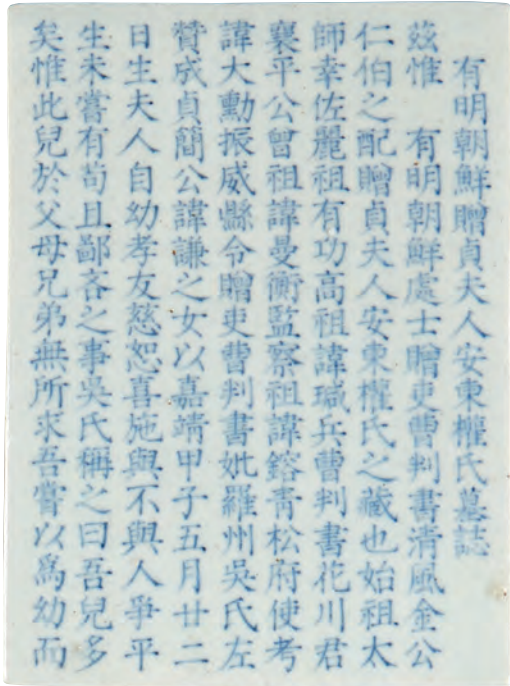 有明朝鮮贈貞夫人安東權氏墓誌
茲惟 有明朝鮮處士贈吏曹判書清風金公
仁伯之配贈貞夫人安東權氏之藏也始祖太
師幸佐麗祖有功高祖諱瑊兵曹判書花川君
襄平公曾祖諱曼衡監察祖諱鎔靑松府使考
諱大勳振威縣令贈吏曹判書妣羅州吳氏左
贊成貞簡公諱謙之女以嘉靖甲子五月廿二
日生夫人自幼孝友慈恕喜施與不與人爭平
生未嘗有苟且鄙吝之事吳氏稱之曰吾兒多
矣惟此兒於父母兄弟無所求吾嘗以爲幼而